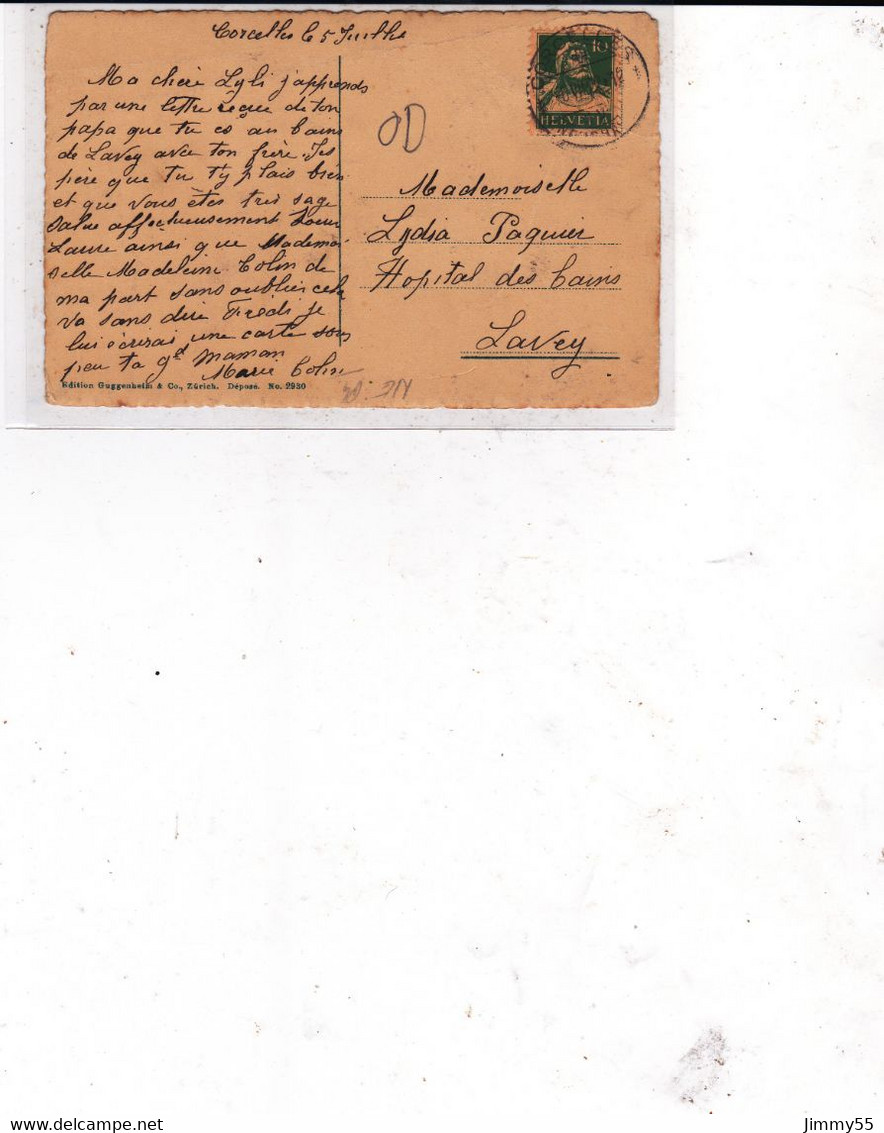 Corcelles le 5 Juillet
Ma chère Lyli j'apprends
par une lettre reçue de ton
papa que tu es au bains
de Lavey avec ton frère. J'es
père que tu t'y plais bien
et que vous êtes très sage
salue affectueusement Soeur
Laure ainsi que Mademoi
selle Madeleine Colin de
ma part sans oublier cela
va sans dire Frédi je
lui écrirai une carte sous
peu ta gd maman
Marie Colin
Edition Guggenheim & Co., Zürich. Déposé. No. 2930
OD
10
HELVETIA
Mademoiselle
Lydia Paquier
Hopital des bains
Lavey
delcampe.net
Jimmy55